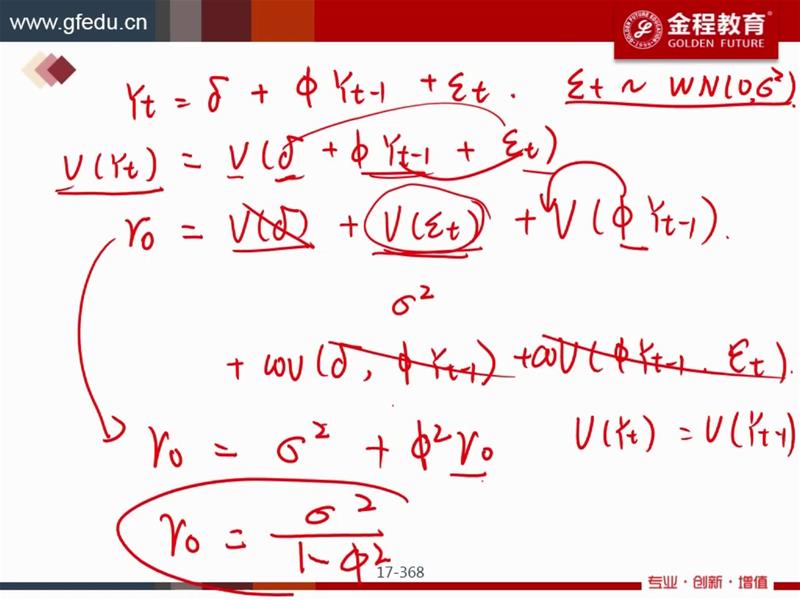 www.gfedu.cn
金程教育
GOLDEN FUTURE
Yt = δ + ϕ Yt-1 + εt . εt ~ WN(0, σ²)
V(Yt) = V(δ + ϕ Yt-1 + εt)
γ0 = V(δ) + V(εt) + V(ϕ Yt-1).
σ²
+ cov(δ, ϕ Yt-1) + cov(ϕ Yt-1, εt).
V(Yt) = V(Yt-1)
γ0 = σ² + ϕ² γ0
γ0 = σ² / 1-ϕ²
17-368
专业·创新·增值